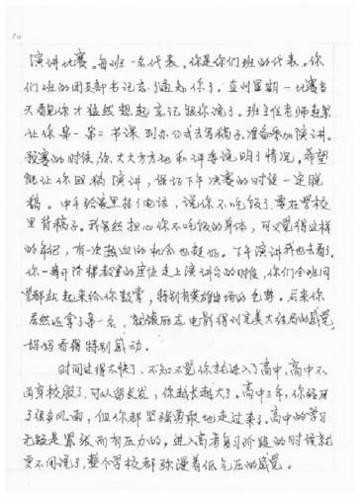 演讲比赛。每班一名代表。你是你们班的代表。你
们班的团支部书记忘了通知你了。直到星期一比赛当
天看见你才猛然想起忘记跟你说了。班主任老师赶紧
让你第一第二节课到办公室去写稿子，准备参加演讲。
预赛的时候，你大大方方地和评委说明了情况，希望
能让你回稿演讲，保证下午决赛的时候一定脱
稿。中午给家里打了电话，说你不吃饭了要在学校
里背稿子。我虽然担心你不吃饭的身体，可又觉得这样
的年纪，有一次热血的机会也挺好。下午演讲我也去看了，
你一离开阶梯教室的座位走上演讲台的时候，你们全班同
学都站起来给你鼓掌，特别有英雄出场的气势。后来你
居然还拿了第一名，就像励志电影得到完美大结局的感觉，
妈妈看得特别感动。
时间过得太快了，不知不觉你就进入了高中。高中不
再穿校服了，可以留长发，你越长越大了。高中三年，你经历
了很多风雨，但你都坚强勇敢地走过来了。高中的学习
无疑是紧张而有压力的，进入高考复习阶段的时候就
更不同说了，整个学校都弥漫着低气压的感觉。